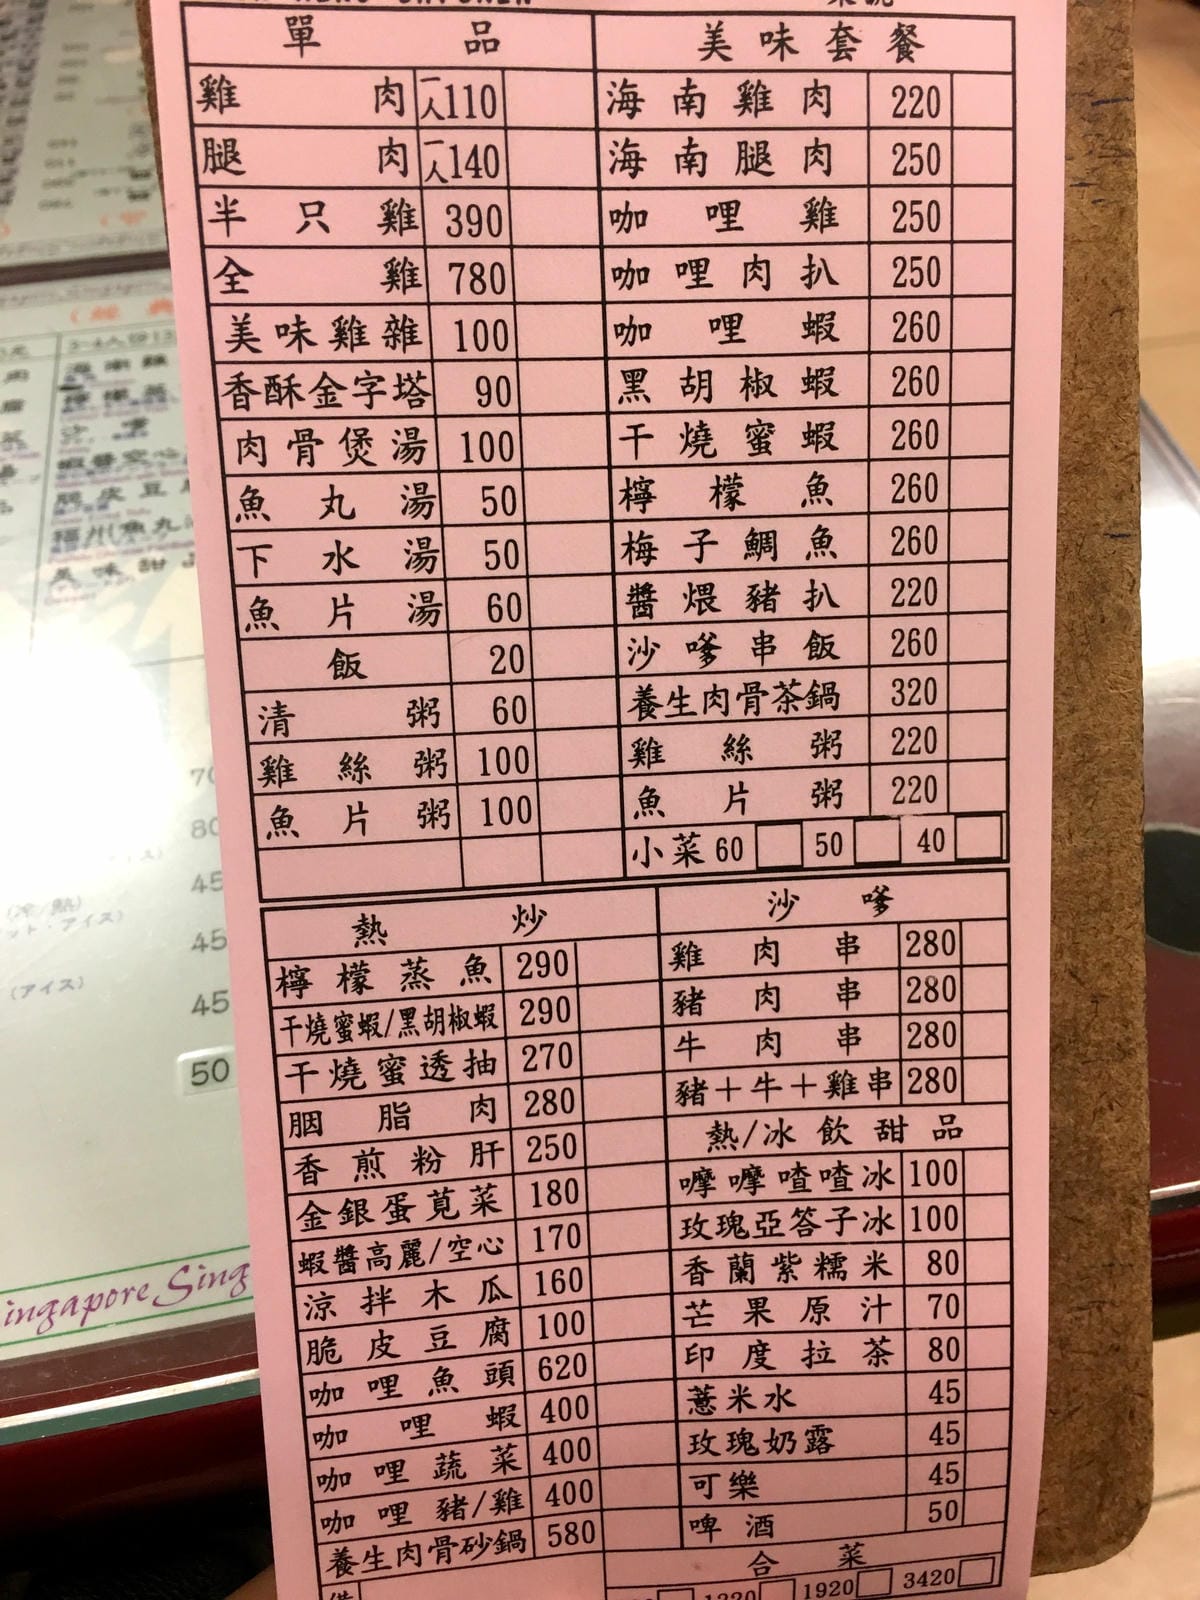 單品 美味套餐
雞肉 一人110 海南雞肉 220
腿肉 一人140 海南腿肉 250
半只雞 390 咖哩雞 250
全雞 780 咖哩肉扒 250
美味雞雜 100 咖哩蝦 260
香酥金字塔 90 黑胡椒蝦 260
肉骨煲湯 100 干燒蜜蝦 260
魚丸湯 50 檸檬魚 260
下水湯 50 梅子鯛魚 260
魚片湯 60 醬煨豬扒 220
飯 20 沙嗲串飯 260
清粥 60 養生肉骨茶鍋 320
雞絲粥 100 雞絲粥 220
魚片粥 100 魚片粥 220
小菜 60 50 40
熱炒 沙嗲
檸檬蒸魚 290 雞肉串 280
干燒蜜蝦/黑胡椒蝦 290 豬肉串 280
干燒蜜透抽 270 牛肉串 280
胭脂肉 280 豬+牛+雞串 280
香煎粉肝 250 熱/冰飲甜品
金銀蛋莧菜 180 嚤嚤喳喳冰 100
蝦醬高麗/空心 170 玫瑰亞答子冰 100
涼拌木瓜 160 香蘭紫糯米 80
脆皮豆腐 100 芒果原汁 70
咖哩魚頭 620 印度拉茶 80
咖哩蝦 400 薏米水 45
咖哩蔬菜 400 玫瑰奶露 45
咖哩豬/雞 400 可樂 45
養生肉骨砂鍋 580 啤酒 50
合菜
1920 3420
3-4人份
海南雞
蝦醬空心
脆皮豆
福州魚丸
美味甜品
Dessert
70
80
45
(冷/熱)
45
(アイス)
45
50
ingapore Sing